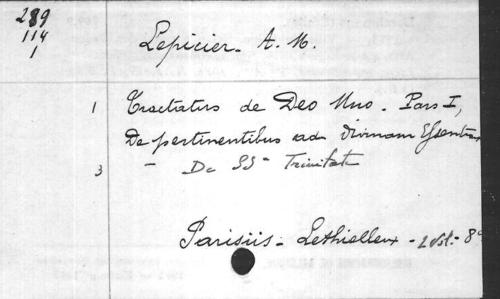 289
114
1
Lepicier. A. M.
1 Tractatus de Deo Uno. Pars I,
De pertinentibus ad divinam Essentia
3 – De SS ª Trinitate
Parisiis - Lethielleux - 2 vol. - 8º